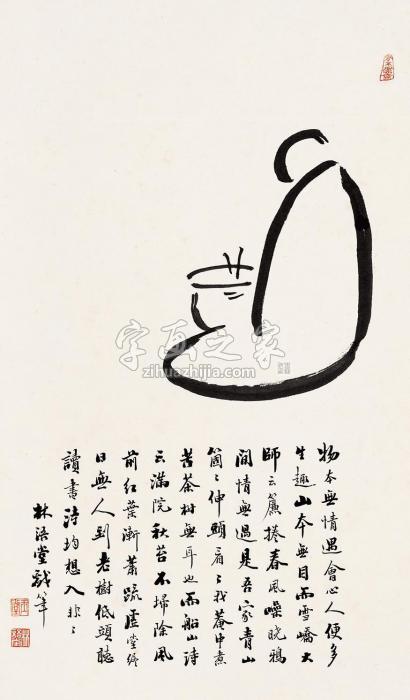 物本無情遇會心人便多
生趣山本無目而雪嶠大
師云簾捲春風噪曉鴉
閒情無過是吾家青山
箇〻伸頭看〻我菴中煮
苦茶樹無耳也而船山詩
云滿院秋苔不掃除風
前紅葉漸蕭疏虛堂鎮
日無人到老樹低頭聽
讀書詩均想入非〻
林語堂戲筆
字画之家
zihuazhijia.com